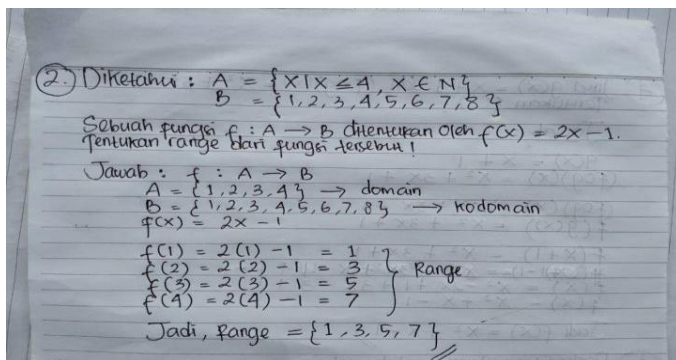 2. Diketahui : A = {x | x ≤ 4, x ∈ N}
B = {1, 2, 3, 4, 5, 6, 7, 8}
Sebuah fungsi f : A → B ditentukan oleh f(x) = 2x - 1.
Tentukan range dari fungsi tersebut !
Jawab : f : A → B
A = {1, 2, 3, 4} → domain
B = {1, 2, 3, 4, 5, 6, 7, 8} → kodomain
f(x) = 2x - 1
f(1) = 2(1) - 1 = 1
f(2) = 2(2) - 1 = 3
f(3) = 2(3) - 1 = 5
f(4) = 2(4) - 1 = 7
Range
Jadi, Range = {1, 3, 5, 7}